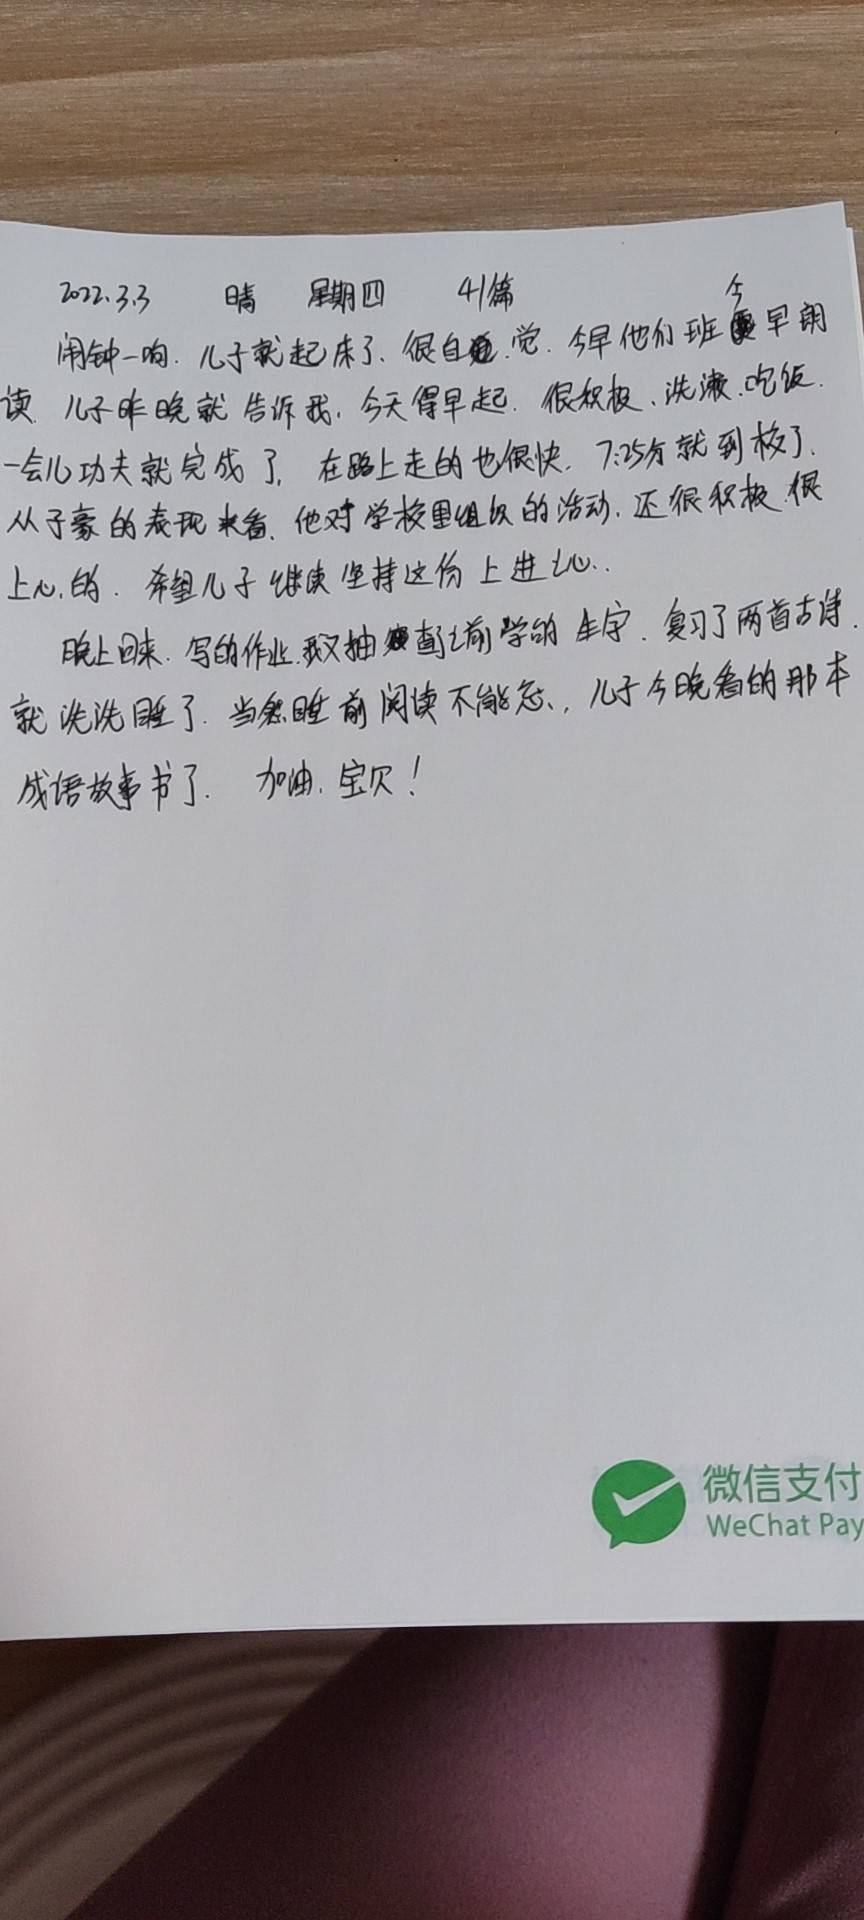 2022.3.3 晴 星期四 41篇
闹钟一响.儿子就起床了、很自觉.今早他们班今早朗
读.儿子昨晚就告诉我,今天得早起.很积极、洗漱.吃饭.
一会儿功夫就完成了,在路上走的也很快.7:25分就到校了.
从子豪的表现来看.他对学校里组织的活动.还很积极.很
上心.的.希望儿子继续坚持这份上进心..
晚上回来.写的作业.我又抽查之前学的生字.复习了两首古诗.
就洗洗睡了.当然睡前阅读不能忘.,儿子今晚看的那本
成语故事书了.加油.宝贝!
微信支付
WeChat Pay